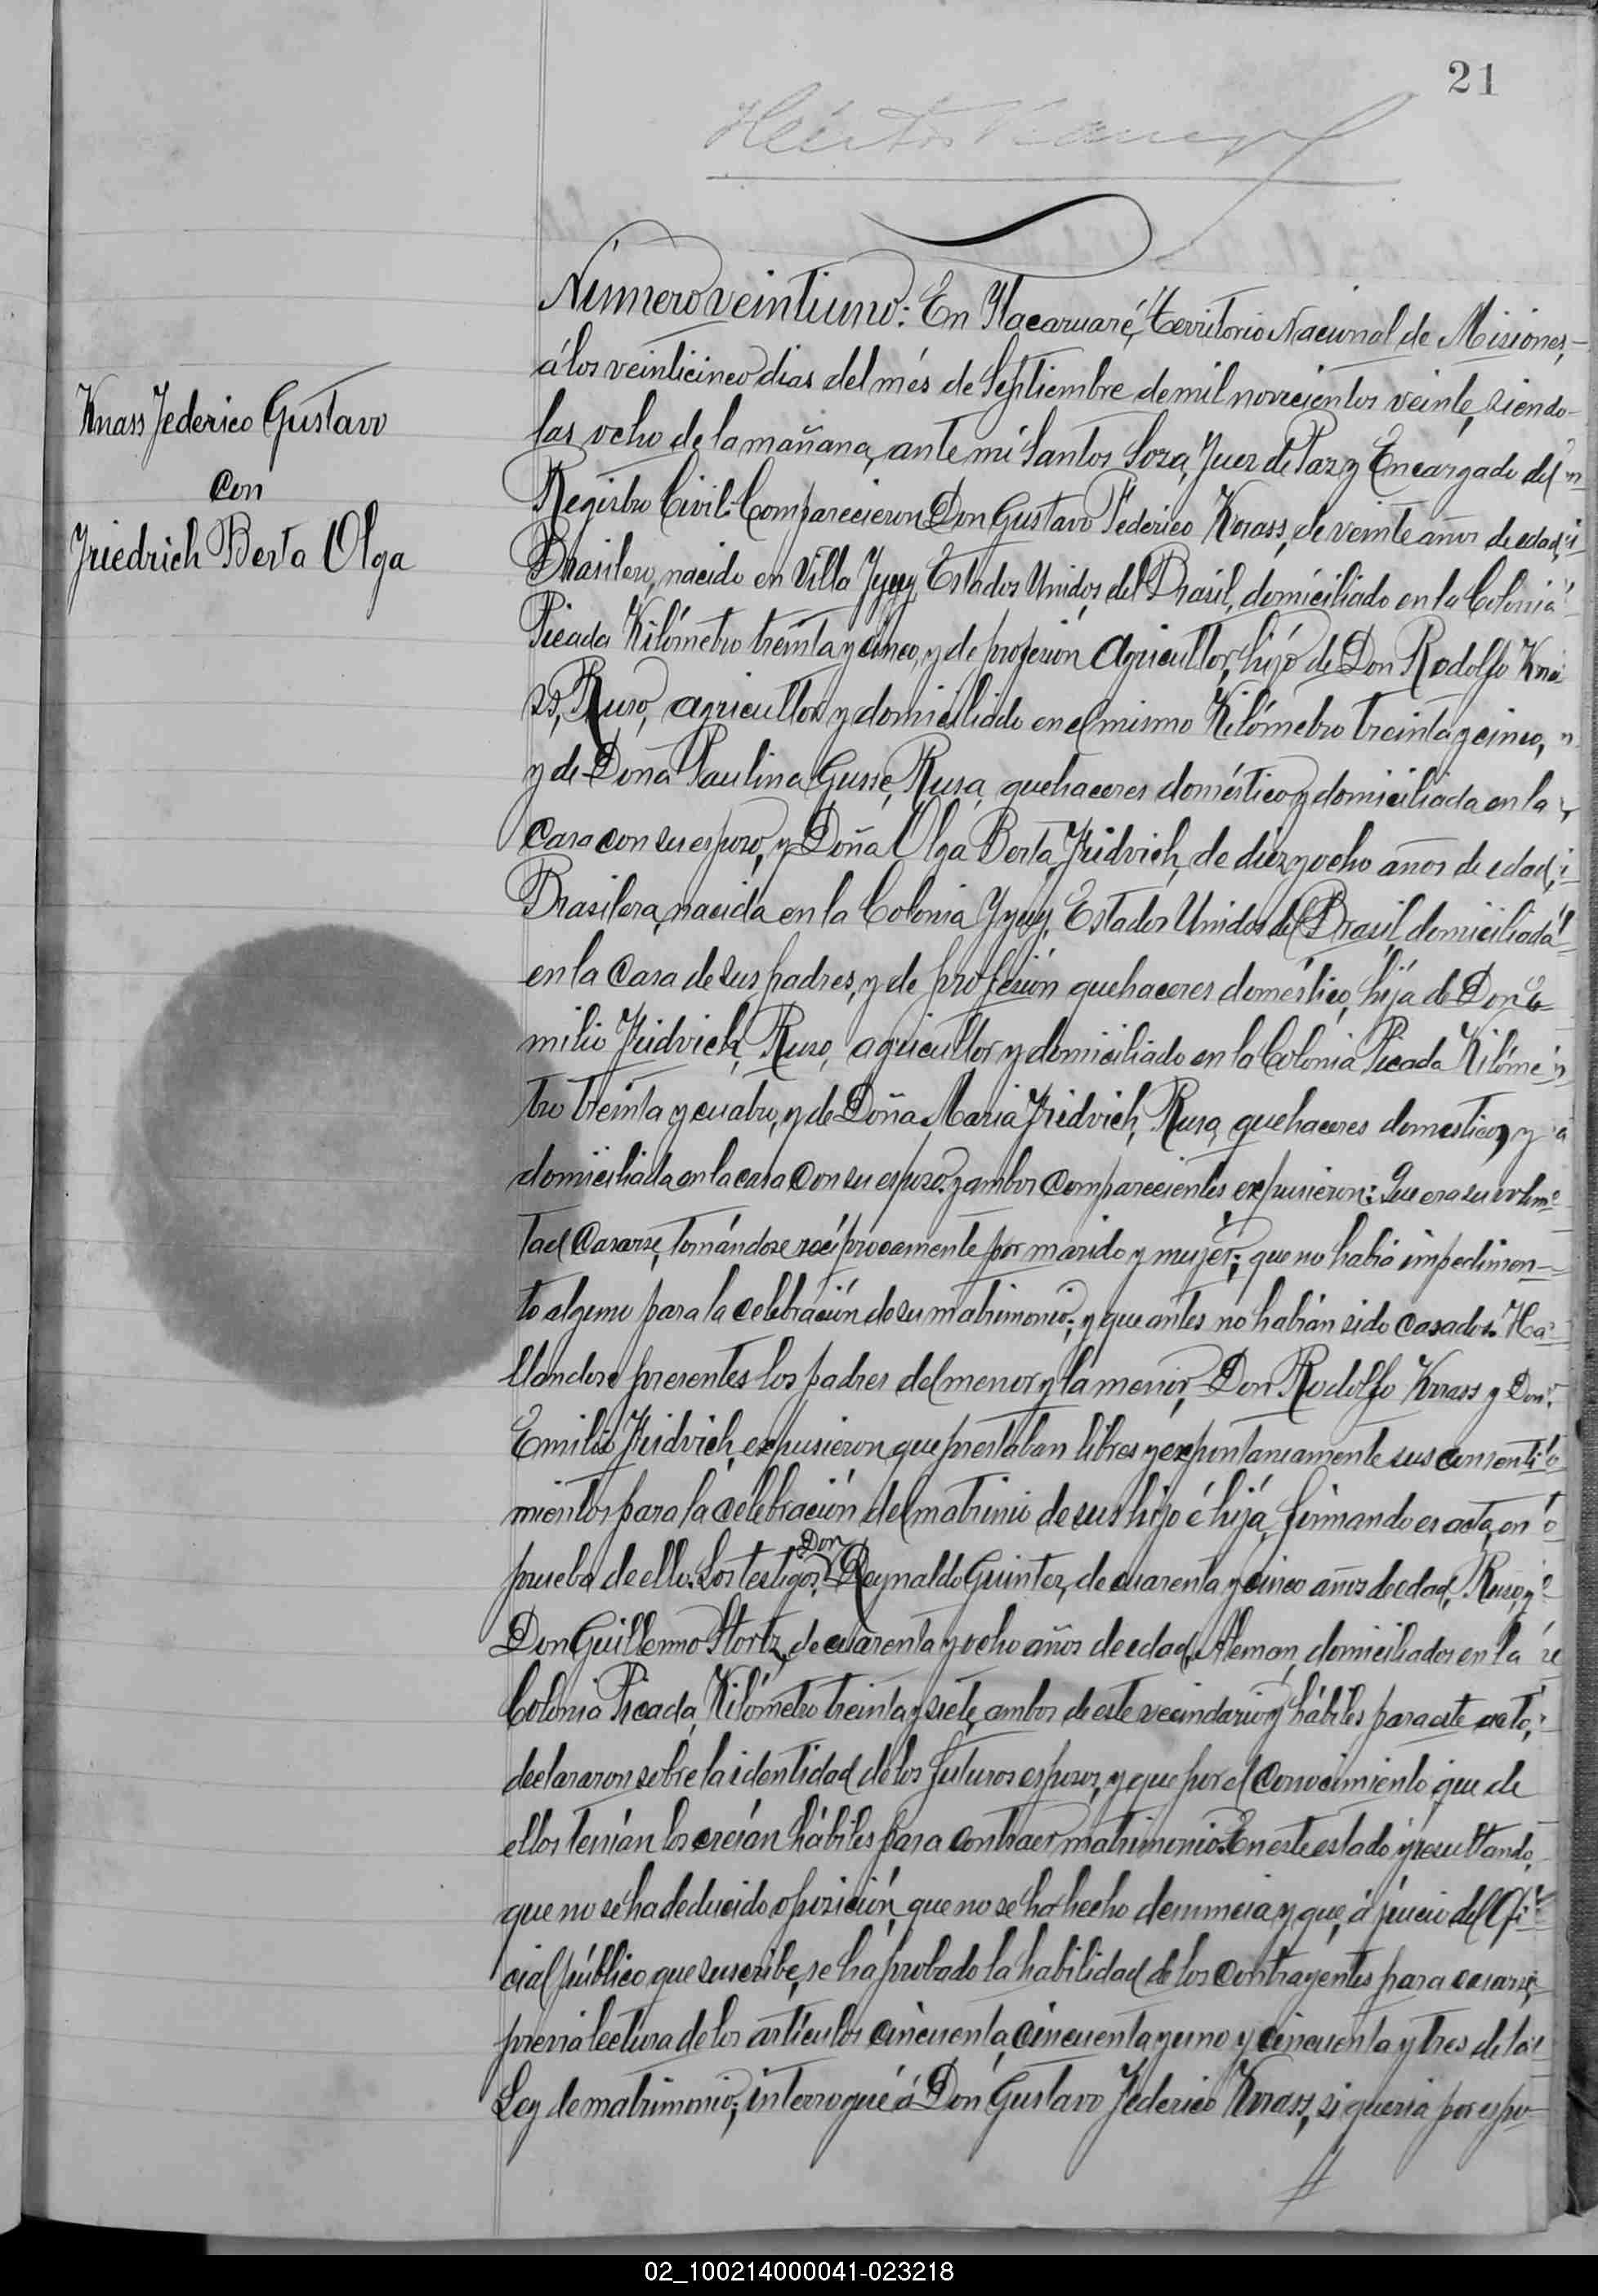 21
Knass Federico Gustavo
con
Friedrich Berta Olga
Número veintiuno: En Itacaruaré, Territorio Nacional de Misiones,
á los veinticinco dias del més de Septiembre de mil novecientos veinte, siendo
las ocho de la mañana, ante mi Santos Sosa, Juez de Paz y Encargado del
Registro Civil: Comparecieron Don Gustavo Federico Knass, de veinte años de edad,
Brasilero, nacido en Villa Yyuy, Estados Unidos del Brasil, domiciliado en la Colonia
Picada Kilómetro treinta y cinco, y de profesión Agricultor, hijo de Don Rodolfo Kna
ss, Ruso, agricultor y domiciliado en el mismo Kilómetro treinta y cinco,
y de Doña Paulina Gusse, Rusa, quehaceres doméstico y domiciliada en la
Casa con su esposo, y Doña Olga Berta Fridrich, de diez y ocho años de edad,
Brasilera, nacida en la Colonia Yyuy, Estados Unidos del Brasil, domiciliada
en la Casa de sus padres, y de profesión quehaceres doméstico, hija de Don E
milio Fridrich, Ruso, agricultor y domiciliado en la Colonia Picada Kilóme
tro treinta y cuatro, y de Doña Maria Fridrich, Rusa, quehaceres domestico, y
domiciliada en la casa con su esposo, y ambos comparecientes expusieron: Que era su volun
tad Casarse, tomándose recíprocamente por marido y mujer; que no habia impedimen-
to alguno para la celebración de su matrimonio; y que antes no habian sido casados. Ha-
llandose presentes los padres del menor y la menor, Don Rodolfo Knass y Don
Emilio Fridrich, expusieron que prestaban libres y expontaneamente sus consenti
mientos para la celebración del matrimio de sus hijo é hija, firmando es acta, en
prueba de ello. Los testigos, Don Reynaldo Guinter, de cuarenta y cinco años de edad, Ruso, y
Don Guillermo Stortz, de cuarenta y ocho años de edad, Aleman, domiciliados en la
Colonia Picada, Kilómetro treinta y siete, ambos de este vecindario y hábiles para este acto,
declararon sobre la identidad de los futuros esposos, y que por el conocimiento que de
ellos tenían los creían hábiles para contraer matrimonio. En este estado y resultando,
que no se ha deducido oposición, que no se ha hecho denuncia y que, á juicio del Ofi
cial público que suscribe, se ha probado la habilidad de los contrayentes para casarse,
previa lectura de los artículos cincuenta, cincuenta y uno y cincuenta y tres de la
Ley de matrimonio; interrogué á Don Gustavo Federico Knass, si queria por espo-
02_100214000041-023218